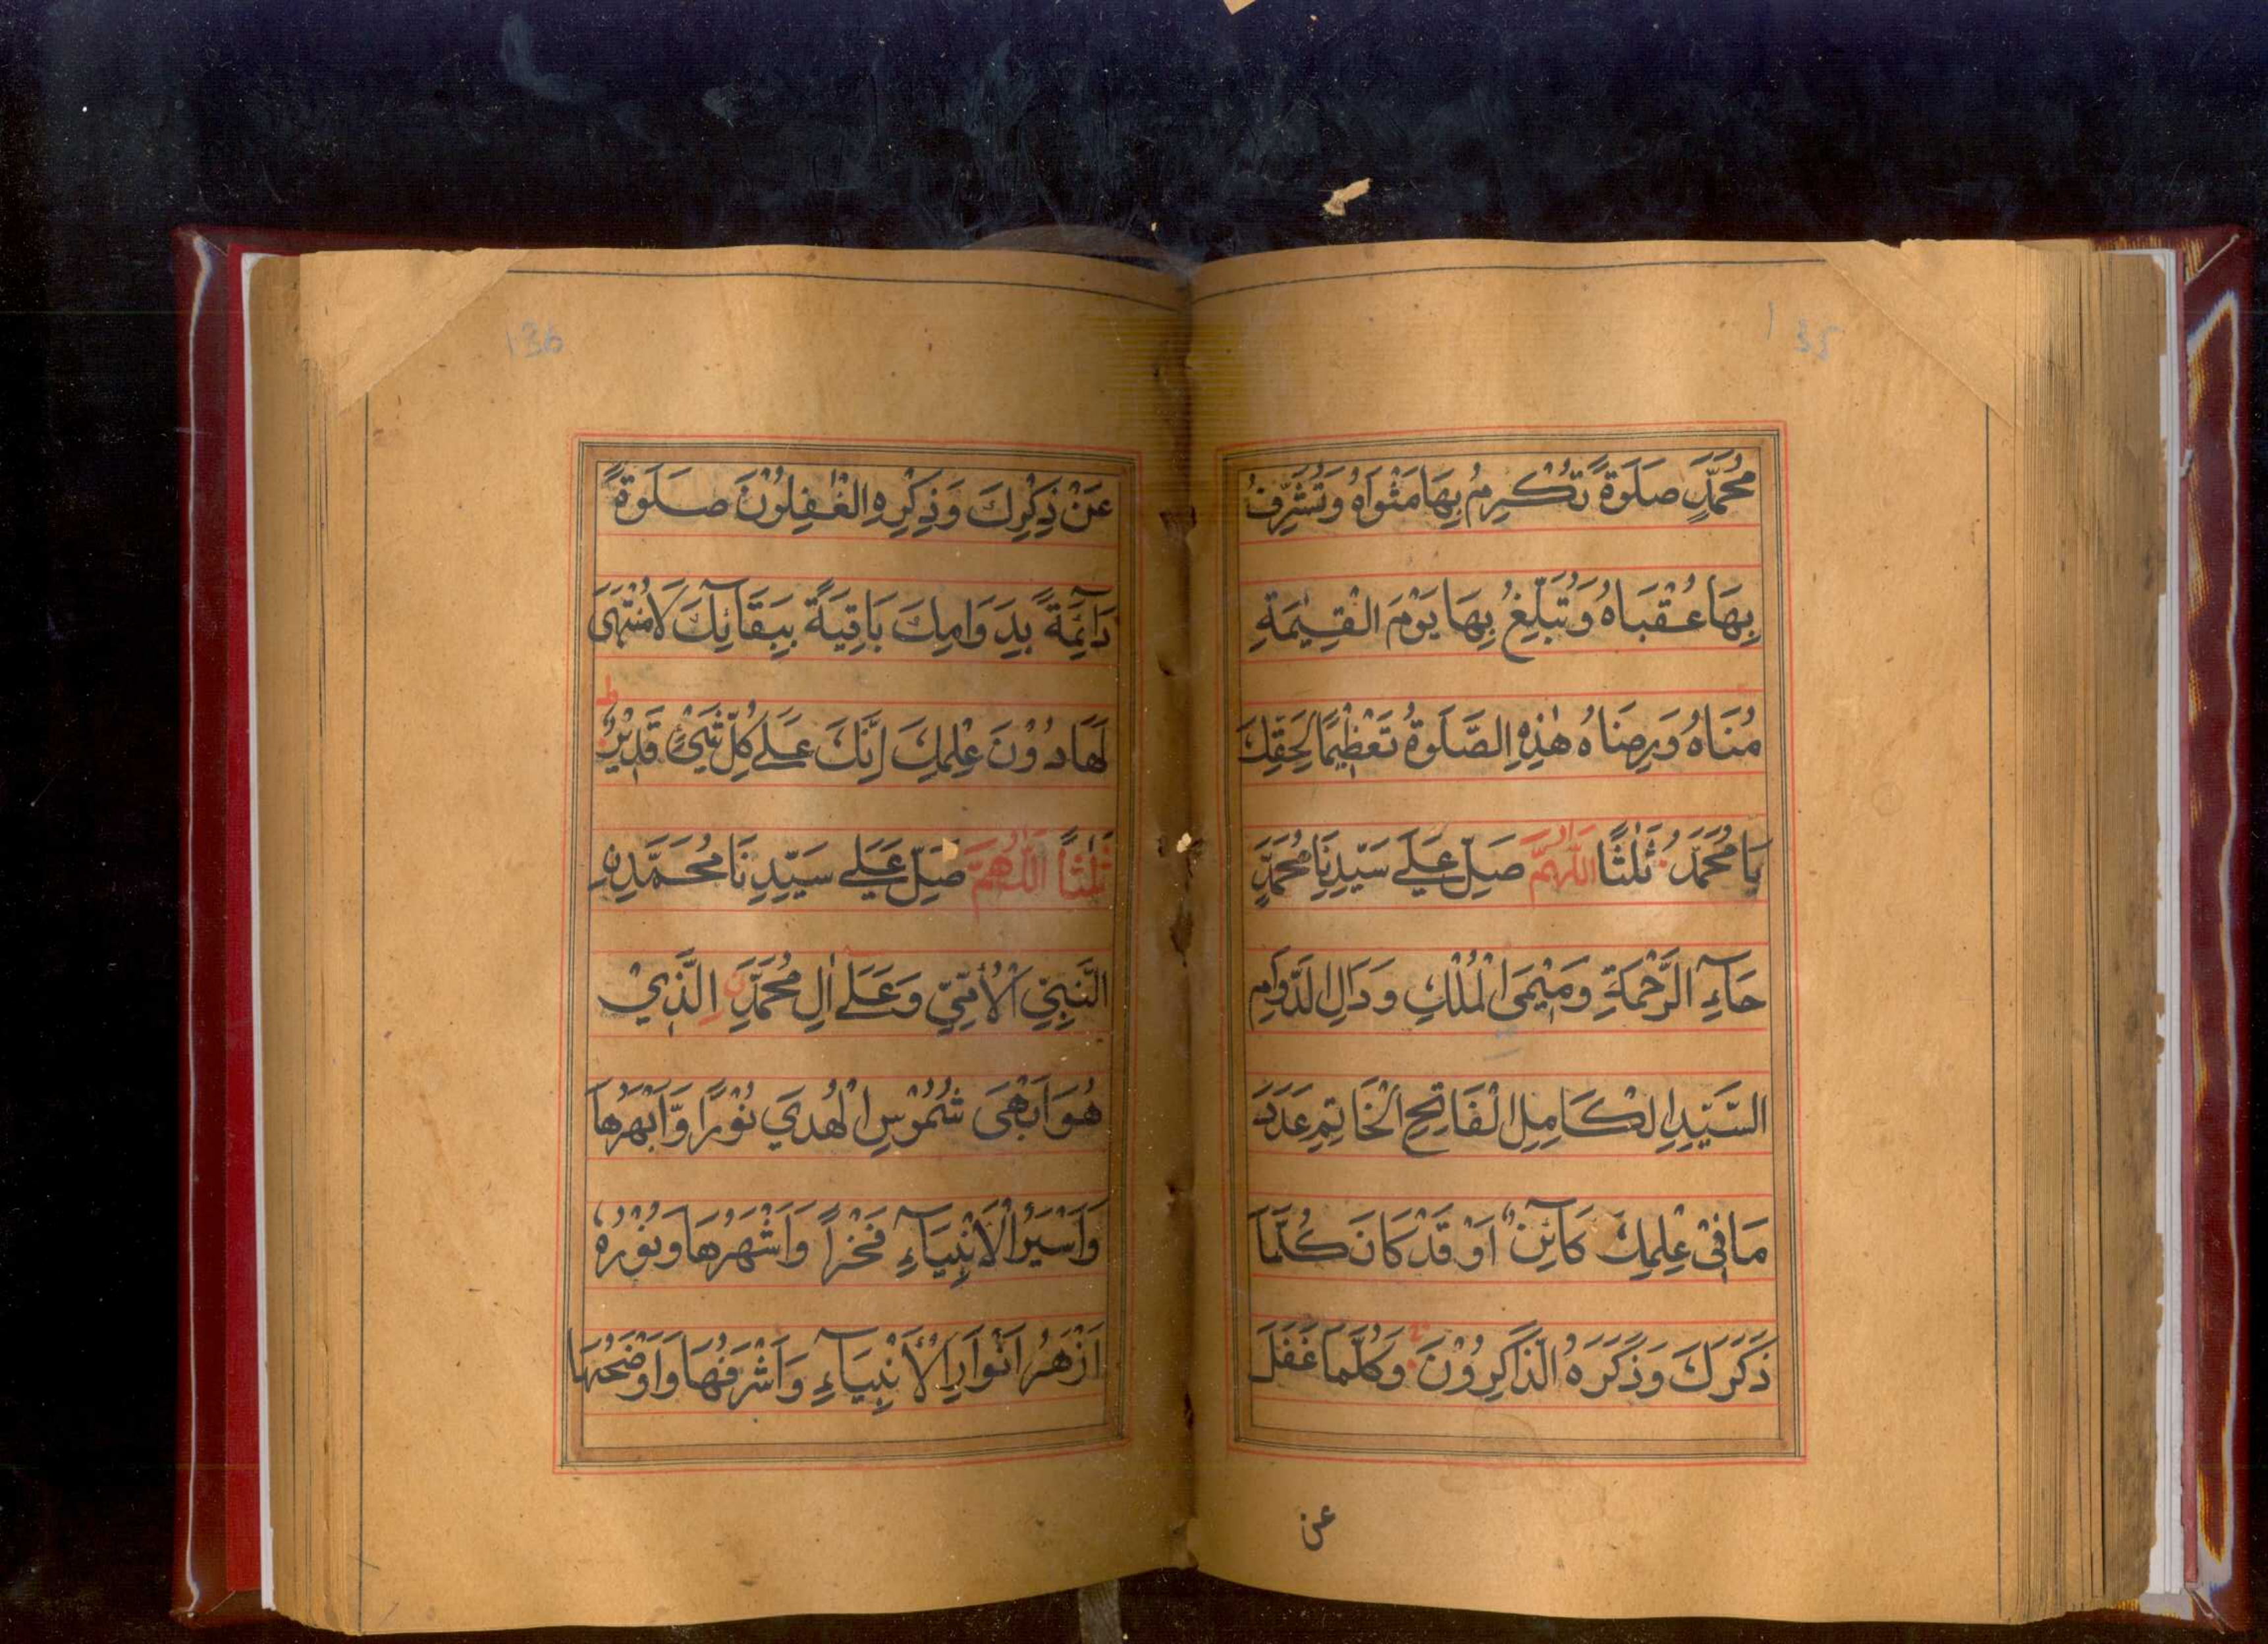 135
مُحَمَّدٍ صَلَوةً تُكْرِمُ بِهَا مَثْوَاهُ وَتُشَرِّفُ
بِهَا عُقْبَاهُ وَتُبَلِّغُ بِهَا يَوْمَ الْقِيٰمَةِ
مُنَاهُ وَرِضَاهُ هٰذِهِ الصَّلَوةُ تَعْظِيْمًا لِحَقِّكَ
يَا مُحَمَّدُ ثَلٰثًا اَللّٰهُمَّ صَلِّ عَلَے سَيِّدِنَا مُحَمَّدٍ
حَآءِ الرَّحْمَةِ وَمِيْمَیِ الْمُلْكِ وَدَالِ الدَّوَامِ
السَّيِّدِ الْكَامِلِ الْفَاتِحِ الْخَاتِمِ عَدَدَ
مَا فِيْ عِلْمِكَ كَآئِنٌ اَوْ قَدْ كَانَ كُلَّمَا
ذَكَرَكَ وَذَكَرَهُ الذَّاكِرُوْنَ وَكُلَّمَا غَفَلَ
عن
136
عَنْ ذِكْرِكَ وَذِكْرِهِ الْغٰفِلُوْنَ صَلَوةً
دَآئِمَةً بِدَوَامِكَ بَاقِيَةً بِبَقَآئِكَ لَا مُنْتَهَى
لَهَا دُوْنَ عِلْمِكَ اِنَّكَ عَلَے كُلِّ شَيْءٍ قَدِيْرٌ ط
ثَلٰثًا اَللّٰهُمَّ صَلِّ عَلَے سَيِّدِنَا مُحَمَّدِنِ
النَّبِيِّ الْأُمِّيِّ وَعَلَے اٰلِ مُحَمَّدِنِ الَّذِيْ
هُوَ اَبْهَى شُمُوْسِ الْهُدَي نُوْرًا وَّاَبْهَرُهَا
وَاَسْيَرُ الْاَنْبِيَآءِ فَخْرًا وَاَشْهَرُهَا وَنُوْرُهُ
اَزْهَرُ اَنْوَارِ الْأَنْبِيَآءِ وَاَشْرَفُهَا وَاَوْضَحُهَا